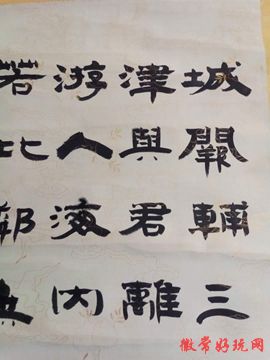 城闕輔三
津與君離
游人海内
若比鄰無
徽常好玩网